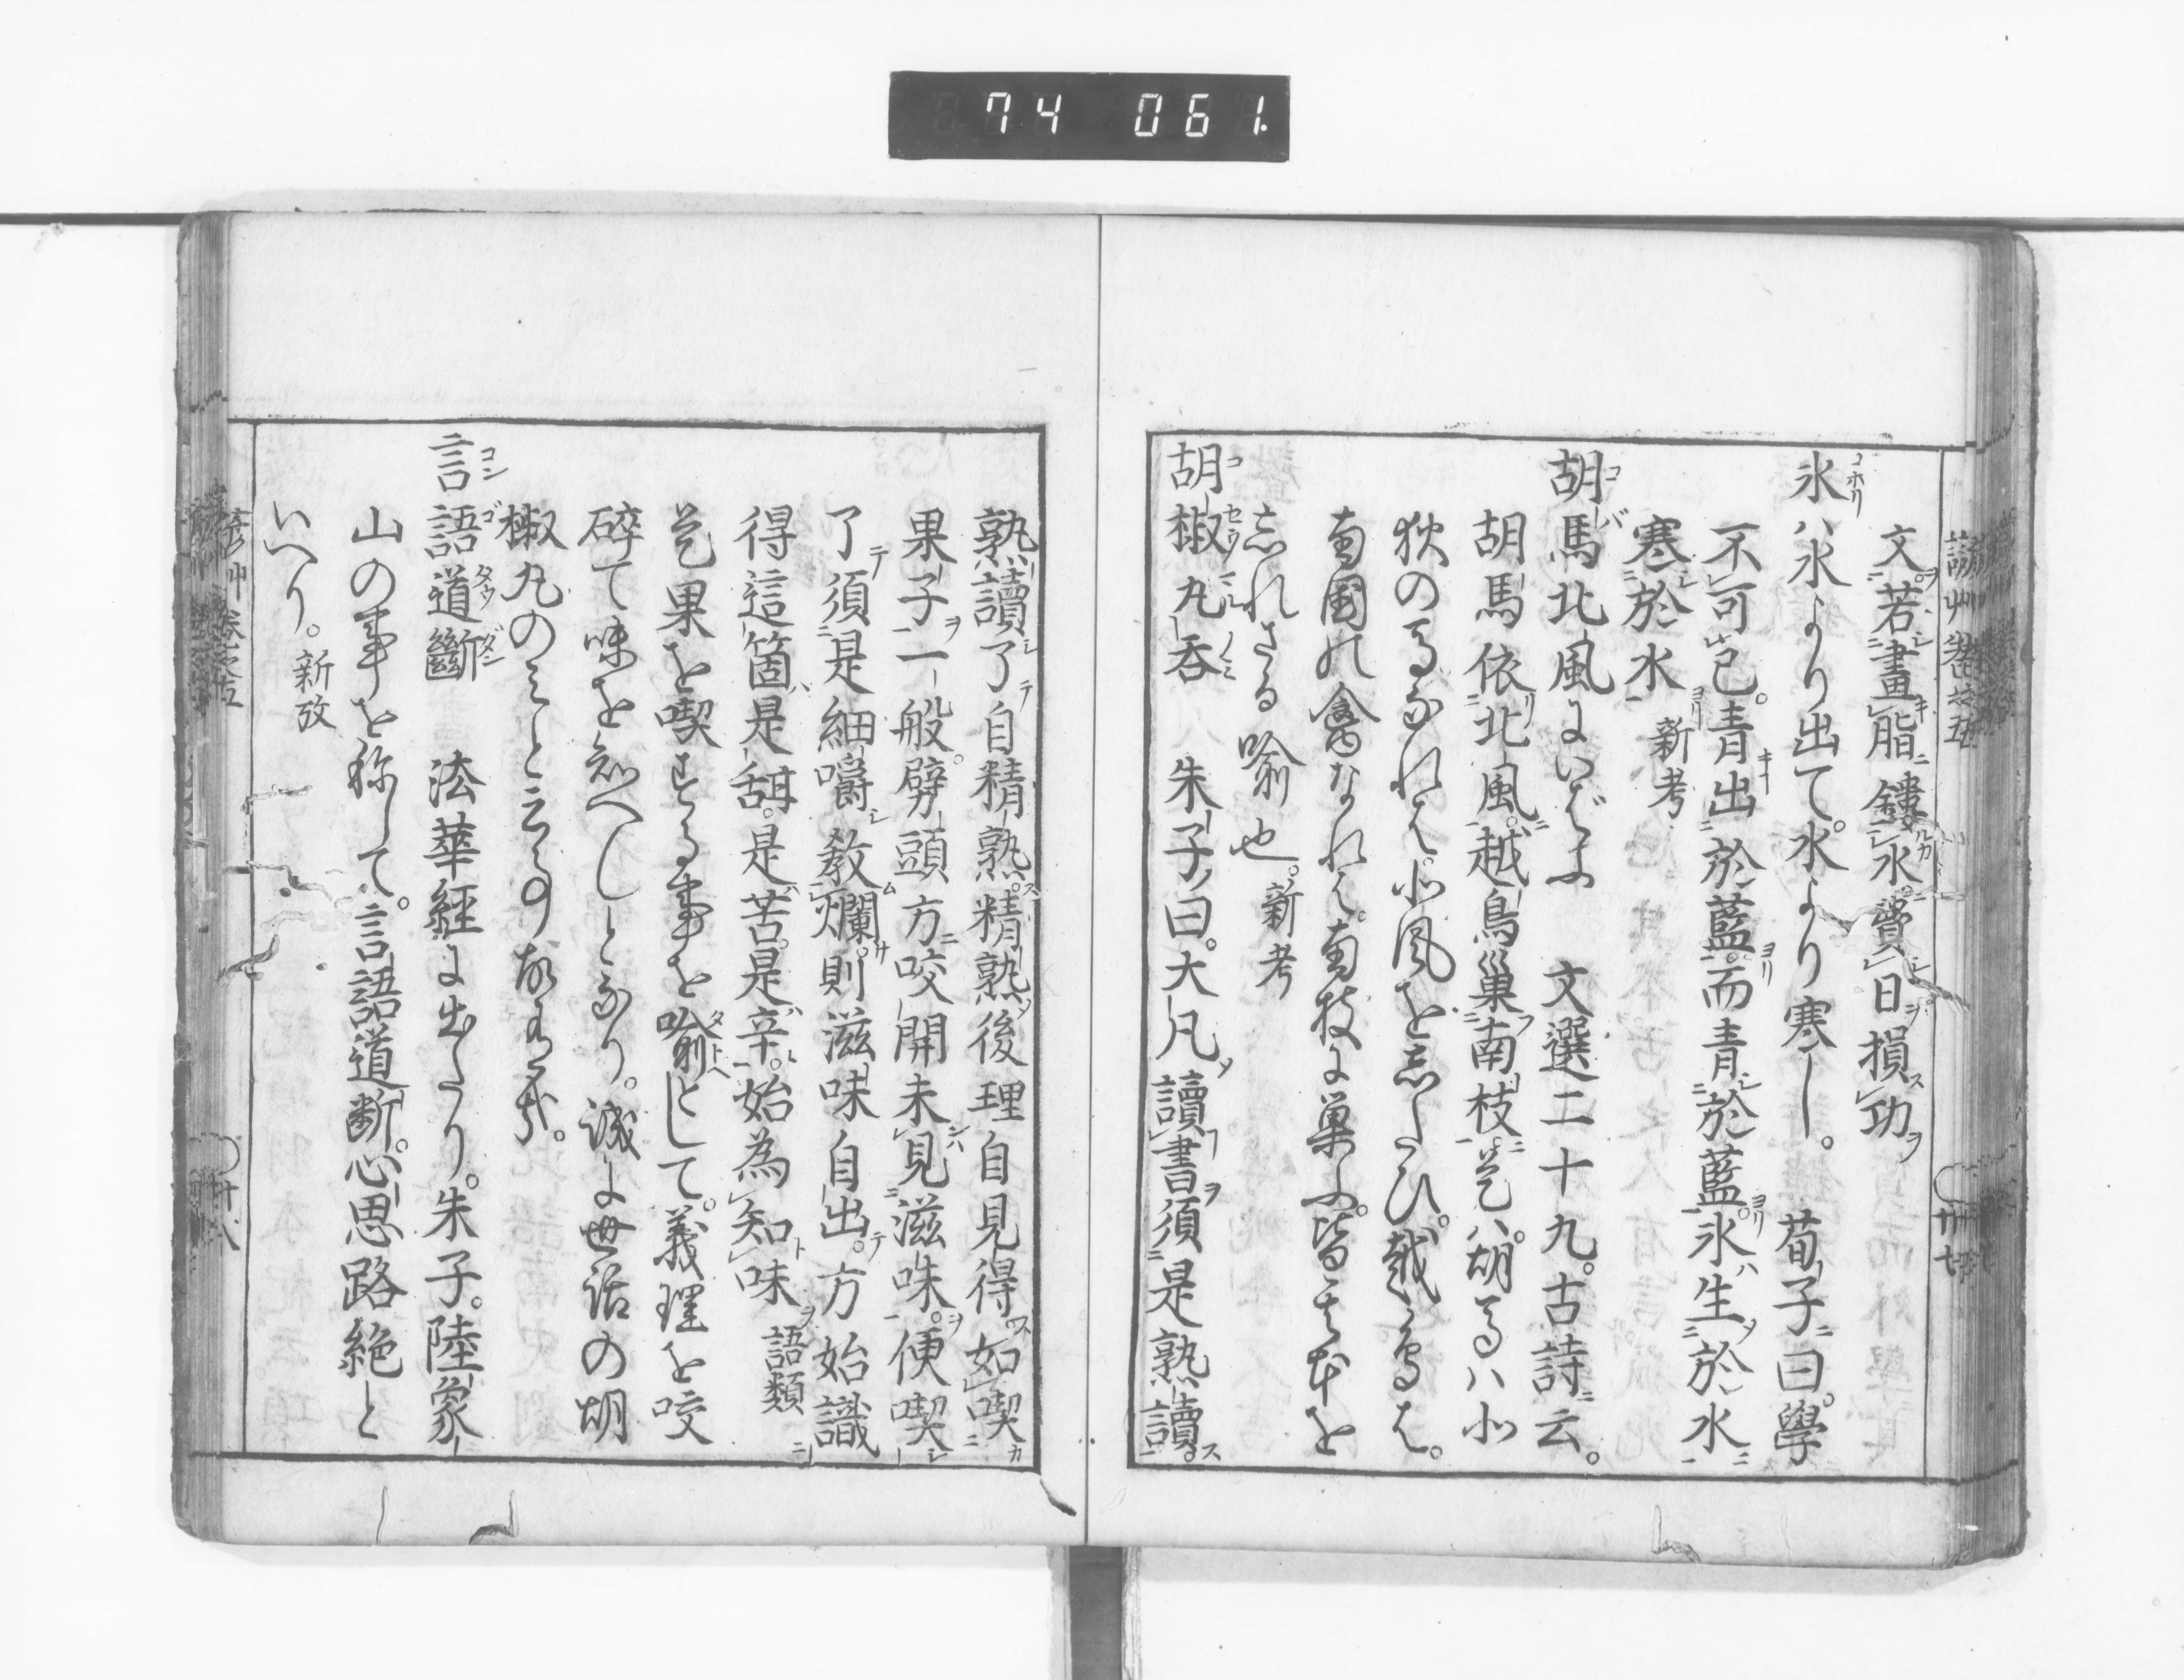 74 061
文若畫脂鏤氷費日損功
氷ハ水より出て。水より寒し。 荀子曰。學
不可已。青出於藍。而青於藍。氷生於水
寒於水 新考
胡馬北風にいばふ 文選二十九。古詩云。
胡馬依北風。越鳥巣南枝。言ハ。胡馬ハ北
狄の馬なれは。北風を志たひ。越鳥は。
南国の禽なれは。南枝に巣ふ。皆其本を
忘れさる喩也。新考
胡椒丸呑 朱子曰。大凡讀書須是熟讀。
熟讀了自精熟。精熟後理自見得。如喫
果子一般。劈頭方咬開未見滋味。便喫
了須是細嚼教爛。則滋味自出。方始識
得這箇是甜。是苦。是辛。始為知味 語類
言果を喫する事を喩として。義理を咬
碎て味を知へしとなり。誠に世話の胡
椒丸のみと云るの
言語道斷 法華經に出たり。朱子。陸象
山の事を称して。言語道断。心思路絶と
いへり。新攷